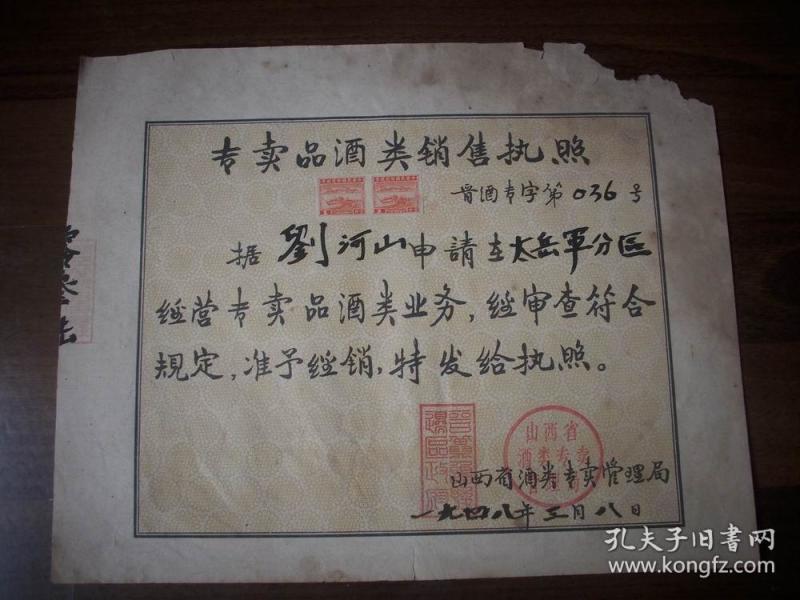 专卖品酒类销售执照
晋酒专字第036号
据劉河山申請在太岳軍分區
经营专卖品酒类业务，经审查符合
規定，准予经销，特发给执照。
山西省
酒类专卖
山西省酒类专卖管理局
一九四八年三月八日
孔夫子旧书网
www.kongfz.com